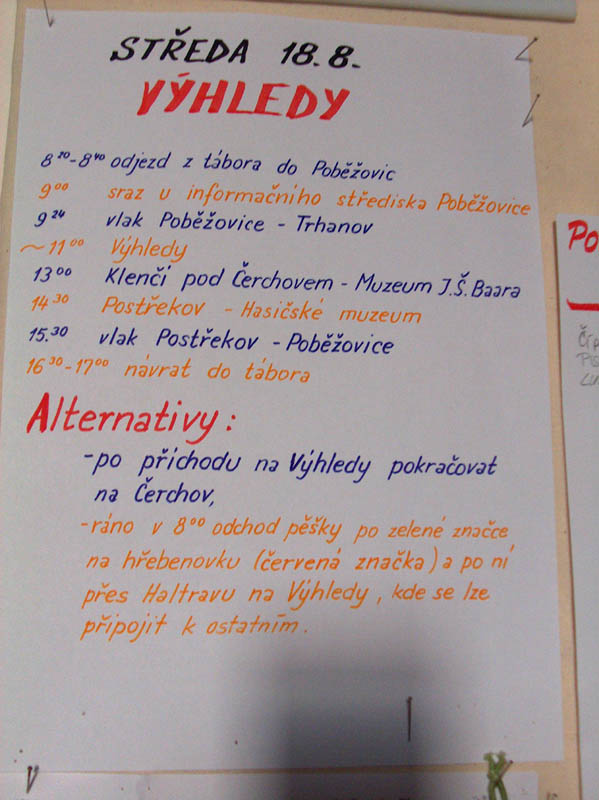 STŘEDA 18.8.
VÝHLEDY
8²⁰-8⁴⁰ odjezd z tábora do Poběžovic
9⁰⁰ sraz u informačního střediska Poběžovice
9²⁴ vlak Poběžovice - Trhanov
~11⁰⁰ Výhledy
13⁰⁰ Klenčí pod Čerchovem - Muzeum J.Š.Baara
14³⁰ Postřekov - Hasičské muzeum
15.³⁰ vlak Postřekov - Poběžovice
16³⁰-17⁰⁰ návrat do tábora
Alternativy:
-po příchodu na Výhledy pokračovat
na Čerchov,
-ráno v 8⁰⁰ odchod pěšky po zelené značce
na hřebenovku (červená značka) a po ní
přes Haltravu na Výhledy, kde se lze
připojit k ostatním.